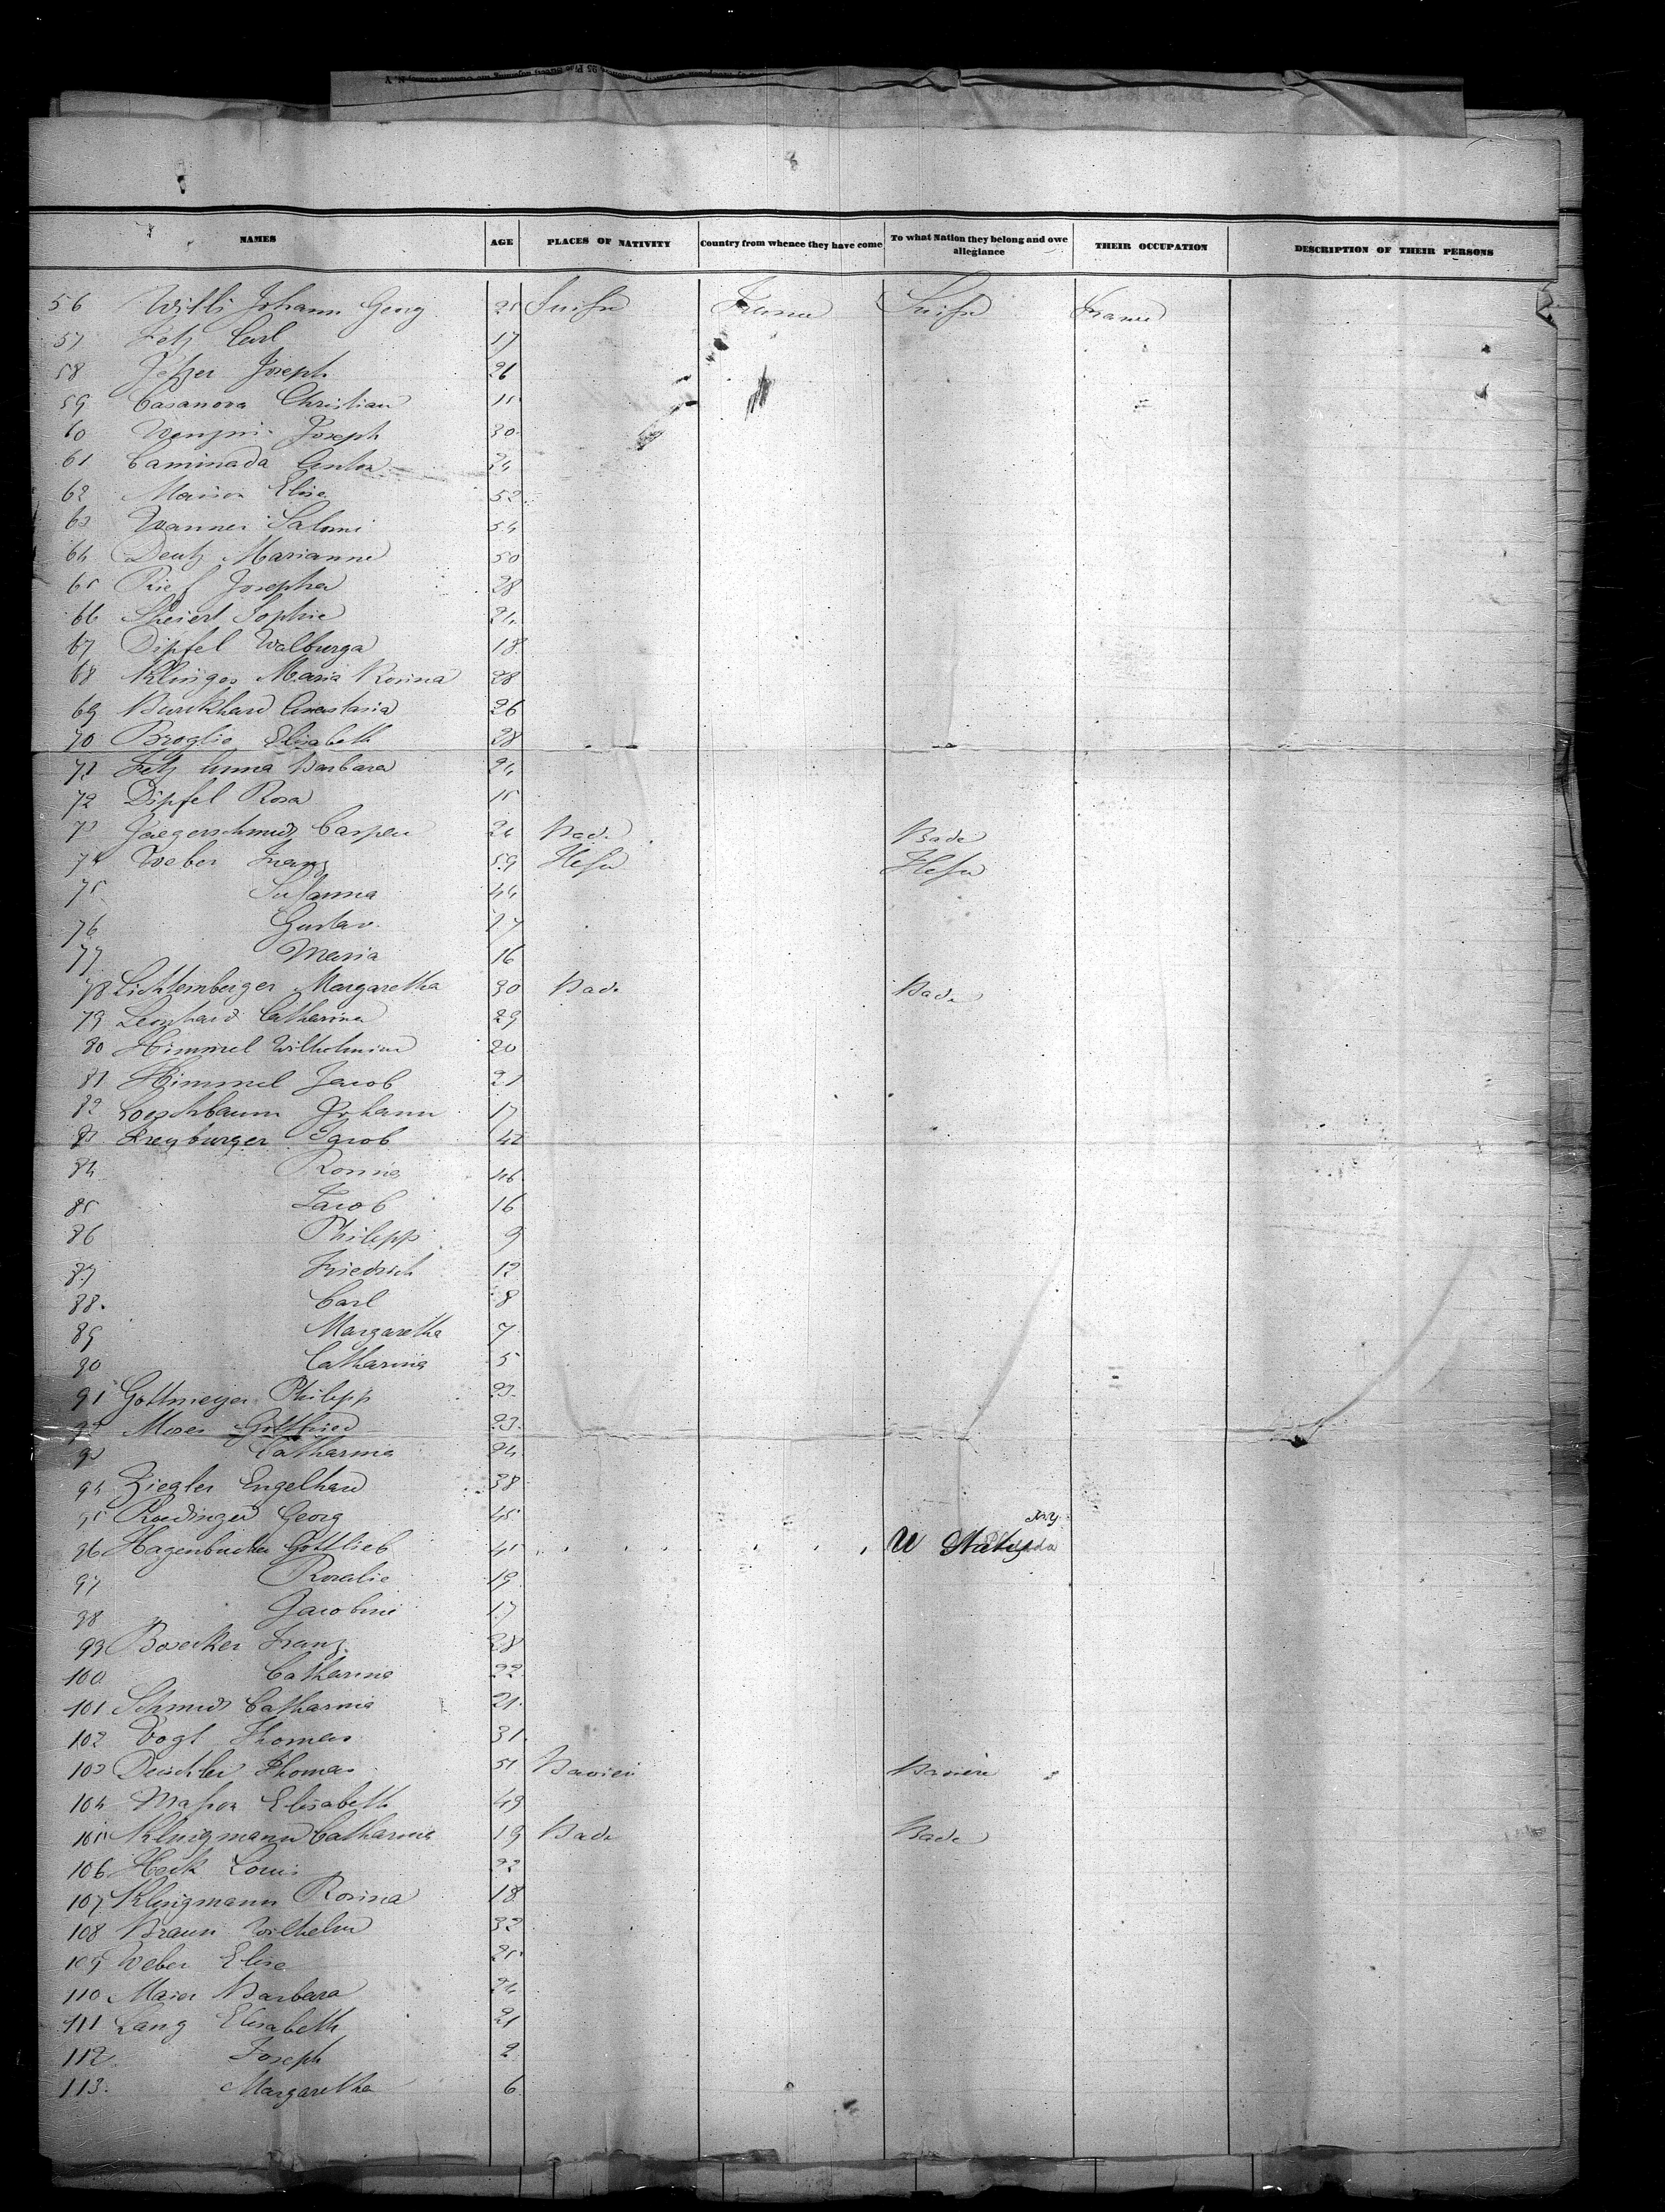 NAMES AGE PLACES OF NATIVITY Country from whence they have come To what Nation they belong and owe allegiance THEIR OCCUPATION DESCRIPTION OF THEIR PERSONS
56 Willi Johann Georg 25 Suisse France Suisse France
57 Fetz Carl 17
58 Joseph 26
59 Casanova Christian 11
60 Joseph 30
61 Caminada Anton 24
62 Elise 52
63 Wanner Salomi 54
64 Deutz Marianne 50
65 Rief Josepha 28
66 Sophie 24
67 Dipfel Walburga 18
68 Maria Rosina 28
69 Burckhard Anastasia 26
70 Broglio Elisabeth 28
71 Fetz Anna Barbara 24
72 Dipfel Rosa 15
73 Jaegerschmidt Caspar 24 Bade Bade
74 Weber Franz 59 Hesse Hesse
75 Susanna 44
76 Gustav 17
77 Maria 16
78 Lichtemberger Margaretha 30 Bade Bade
79 Leonhard Catharina 29
80 Himmel Wilhelmine 20
81 Himmel Jacob 21
82 Loeschbaum Johann 17
83 Freyburger Jacob 42
84 Rosina 46
85 Jacob 16
86 Philipp 9
87 Friedrich 12
88 Carl 8
89 Margaretha 7
90 Catharina 5
91 Gottmeyer Philipp 23
92 Moser Gottfried 23
93 Catharina 24
94 Ziegler Engelhard 38
95 Georg 45
96 Hagenbucher Gottlieb 45 U States N.Y.
97 Rosalie 19
98 Jacobine 17
99 Boecker Franz 28
100 Catharina 22
101 Schmidt Catharina 21
102 Vogt Thomas 31
103 Deichler Thomas 51 Baviere Baviere
104 Masson Elisabeth 49
105 Klingmann Catharina 19 Bade Bade
106 Heck Louis 22
107 Klingmann Rosina 18
108 Braun Wilhelm 32
109 Weber Elise 25
110 Maier Barbara 24
111 Lang Elisabeth 21
112 Joseph 2
113 Margaretha 6